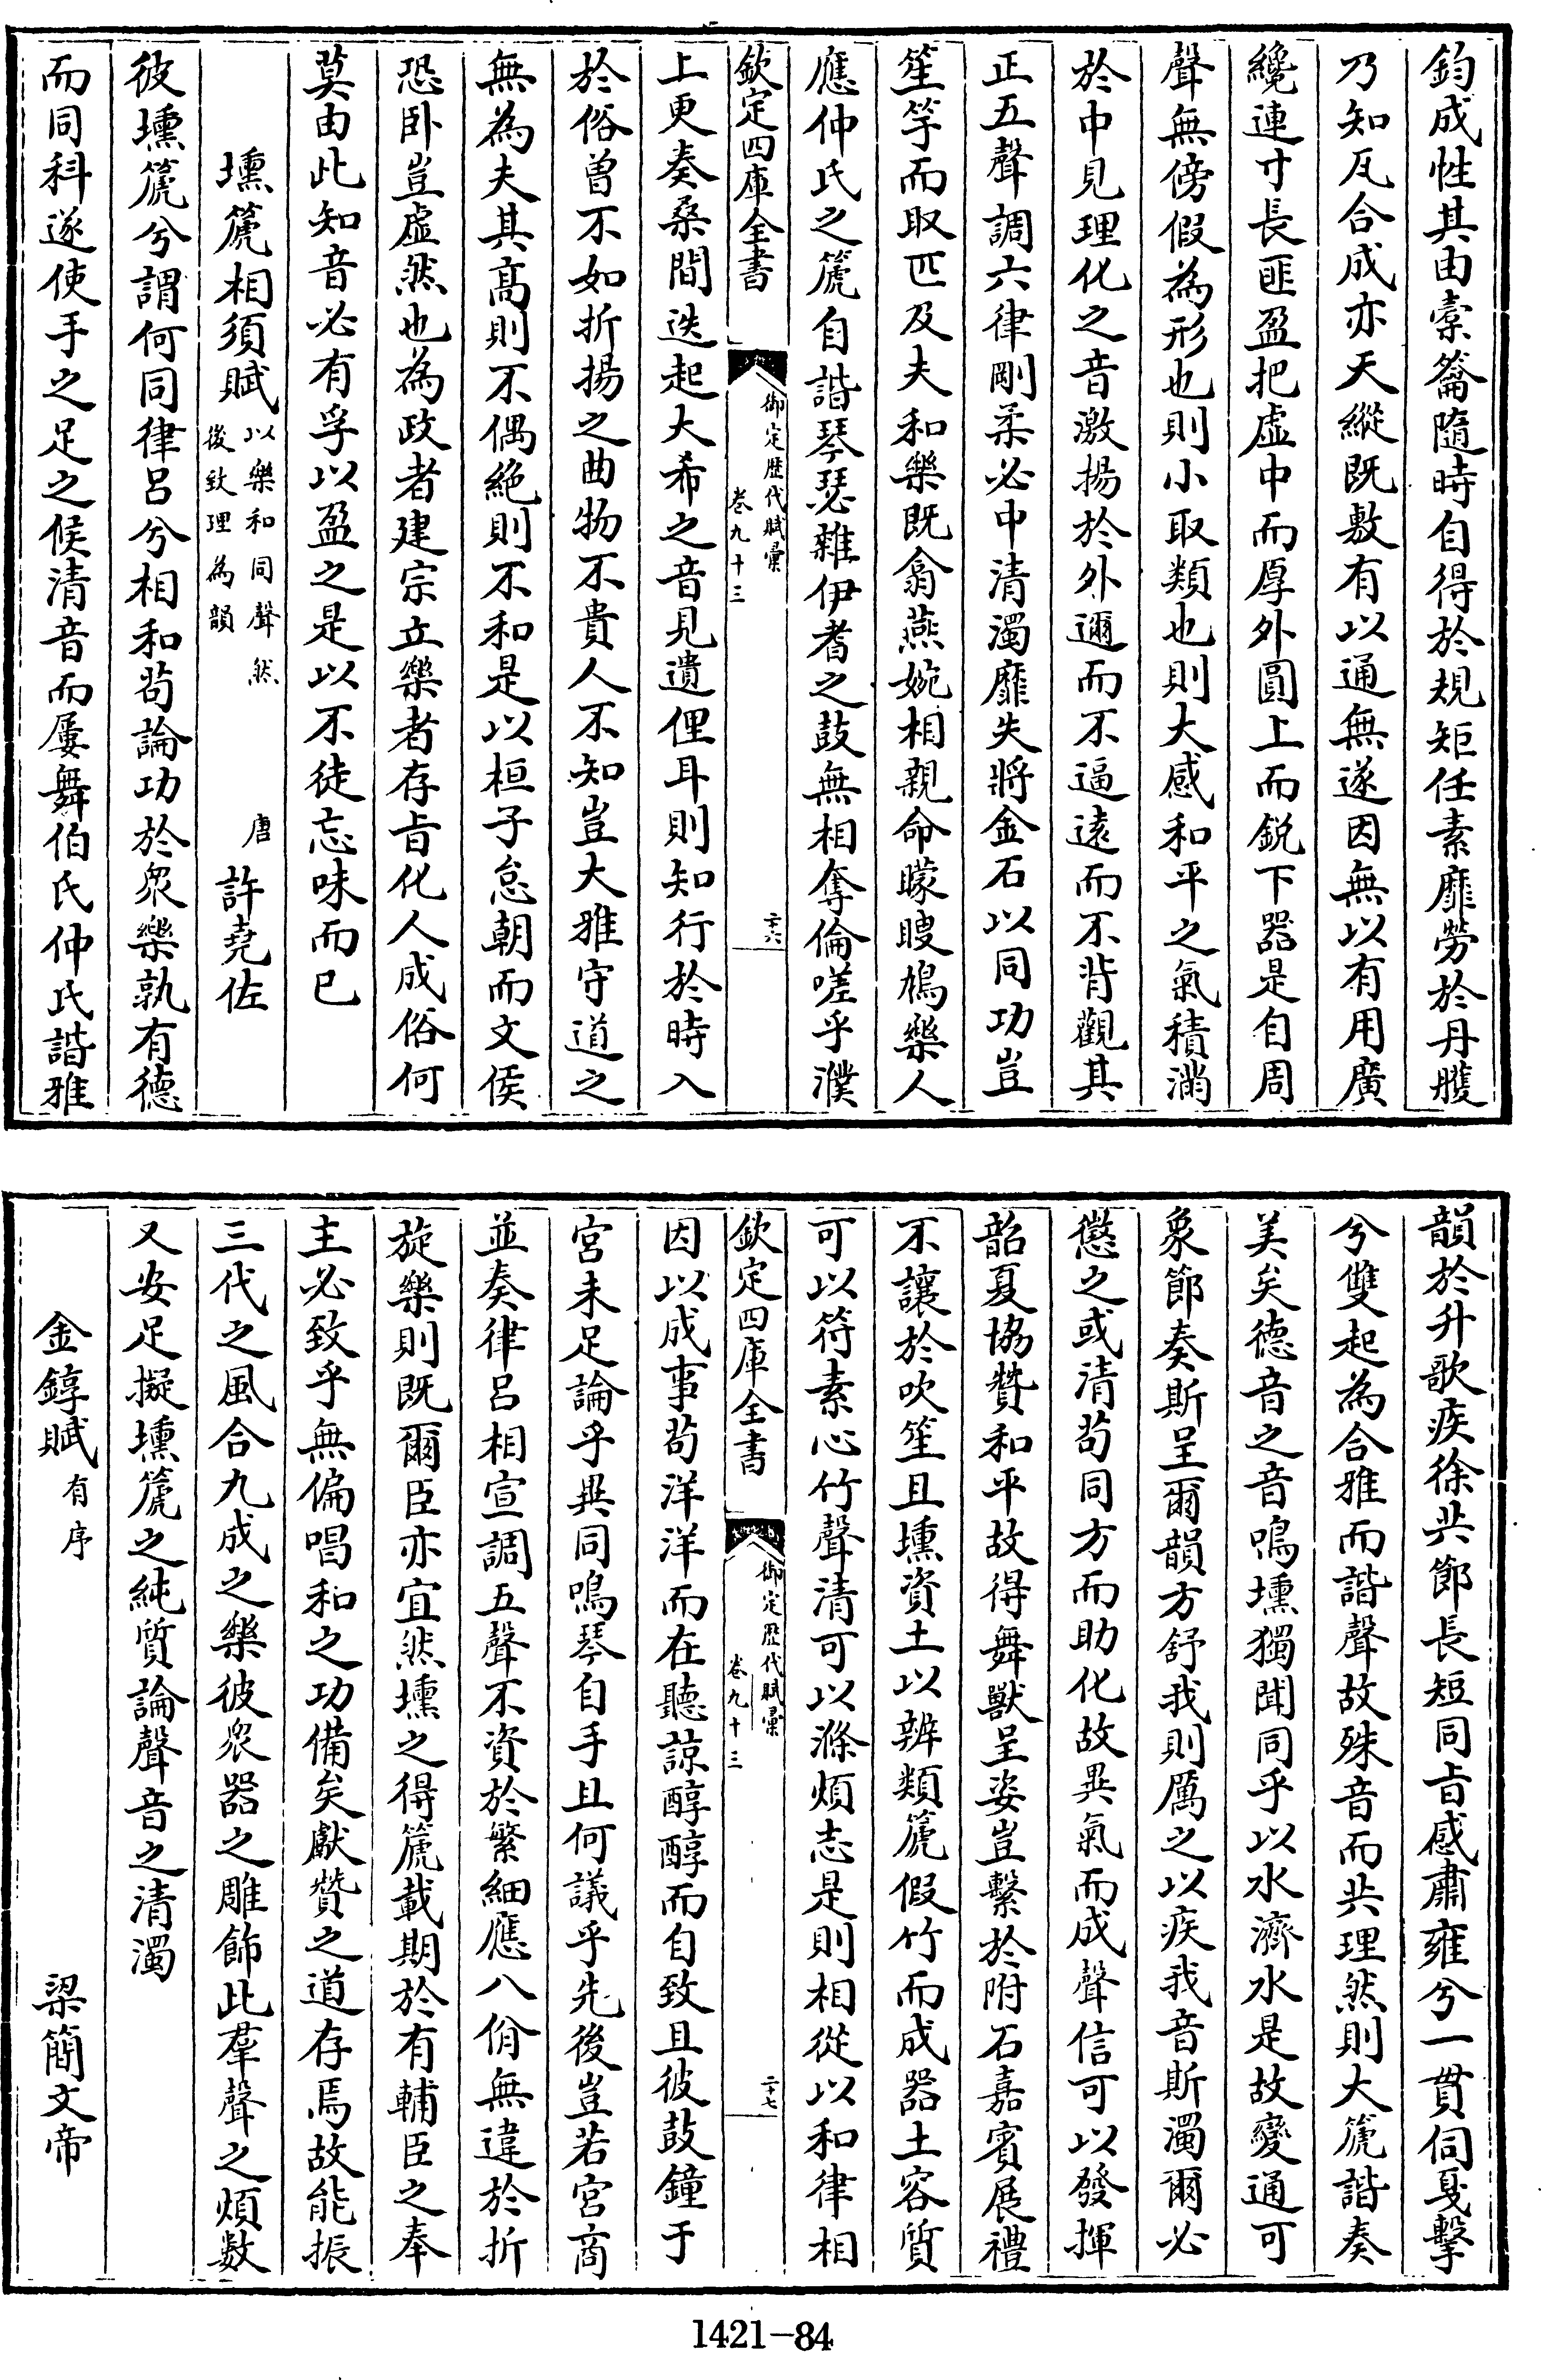 鈞成性其由橐籥隨時自得於規矩任素靡勞於丹雘
乃知瓦合成亦天縱既敷有以通無遂因無以有用廣
纔連寸長匪盈把虛中而厚外圓上而鋭下器是自周
聲無傍假為形也則小取類也則大感和平之氣積滿
於中見理化之音激揚於外邇而不逼遠而不背觀其
正五聲調六律剛柔必中清濁靡失將金石以同功豈
笙竽而取匹及夫和樂既翕燕婉相親命矇瞍鳩樂人
應仲氏之篪自諧琴瑟雜伊耆之鼓無相奪倫嗟乎濮
欽定四庫全書
御定歷代賦彙
卷九十三
二十六
上更奏桑間迭起大希之音見遺俚耳則知行於時入
於俗曾不如折揚之曲物不貴人不知豈大雅守道之
無為夫其高則不偶絶則不和是以桓子怠朝而文侯
恐卧豈虛然也為政者建宗立樂者存㫖化人成俗何
莫由此知音必有孚以盈之是以不徒忘味而已
壎篪相須賦以樂和同聲然後致理為韻 唐許堯佐
彼壎篪兮謂何同律呂兮相和茍論功於衆樂孰有德
而同科遂使手之足之候清音而屢舞伯氏仲氏諧雅
韻於升歌疾徐共節長短同㫖感肅雍兮一貫伺戛擊
兮雙起為合雅而諧聲故殊音而共理然則大篪諧奏
美矣德音之音鳴壎獨聞同乎以水濟水是故變通可
象節奏斯呈爾韻方舒我則厲之以疾我音斯濁爾必
懲之或清茍同方而助化故異氣而成聲信可以發揮
韶夏協贊和平故得舞獸呈姿豈繫於附石嘉賓展禮
不讓於吹笙且壎資土以辨類篪假竹而成器土容質
可以符素心竹聲清可以滌煩志是則相從以和律相
欽定四庫全書
御定歷代賦彙
卷九十三
二十七
因以成事茍洋洋而在聽諒醇醇而自致且彼鼓鐘于
宮未足論乎異同鳴琴自手且何議乎先後豈若宮商
並奏律呂相宣調五聲不資於繁細應八佾無違於折
旋樂則既爾臣亦宜然壎之得篪載期於有輔臣之奉
主必致乎無偏唱和之功備矣獻贊之道存焉故能振
三代之風合九成之樂彼衆器之雕飾此羣聲之煩數
又安足擬壎篪之純質論聲音之清濁
金錞賦有序 梁簡文帝
1421-84